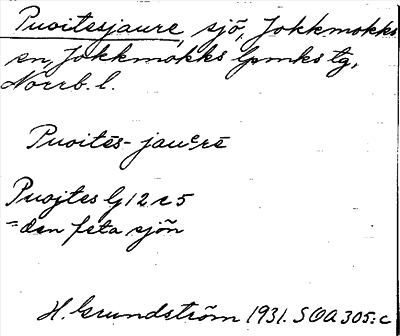 Puoitesjaure, sjö, Jokkmokks
sn, Jokkmokks lpmks tg,
Norrb. l.
Puoitēs-jauᵉrē
Puojtes G 12 c 5
= den feta sjön
H. Grundström 1931. SOA 305:c